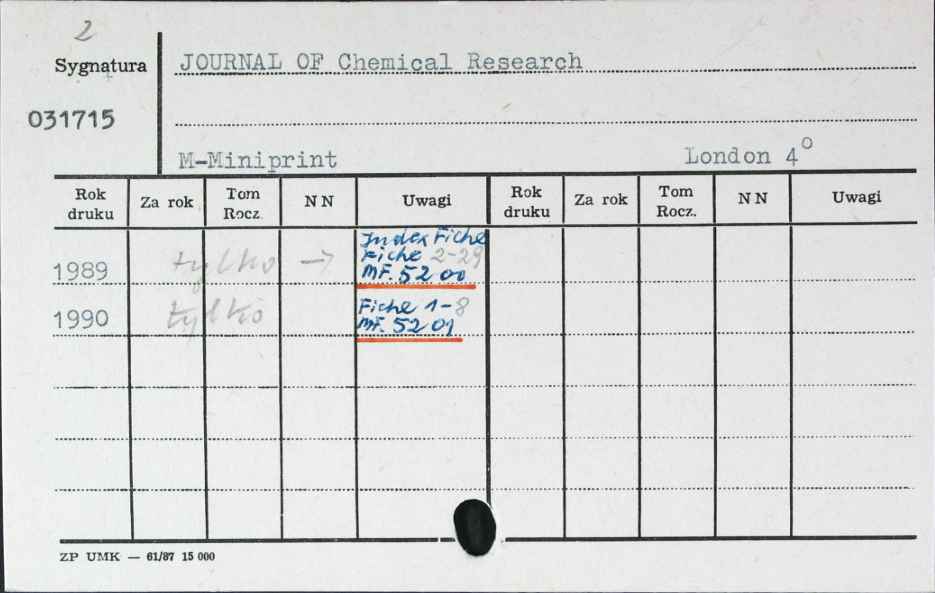 2
Sygnatura
JOURNAL OF Chemical Research
031715
M-Miniprint
London 4°
Rok druku
Za rok
Tom Rocz.
NN
Uwagi
Rok druku
Za rok
Tom Rocz.
NN
Uwagi
1989 tylko → Index Fiche
Fiche 2-29
MF. 5200
1990 tylko Fiche 1-8
MF. 5201
ZP UMK — 61/87 15 000